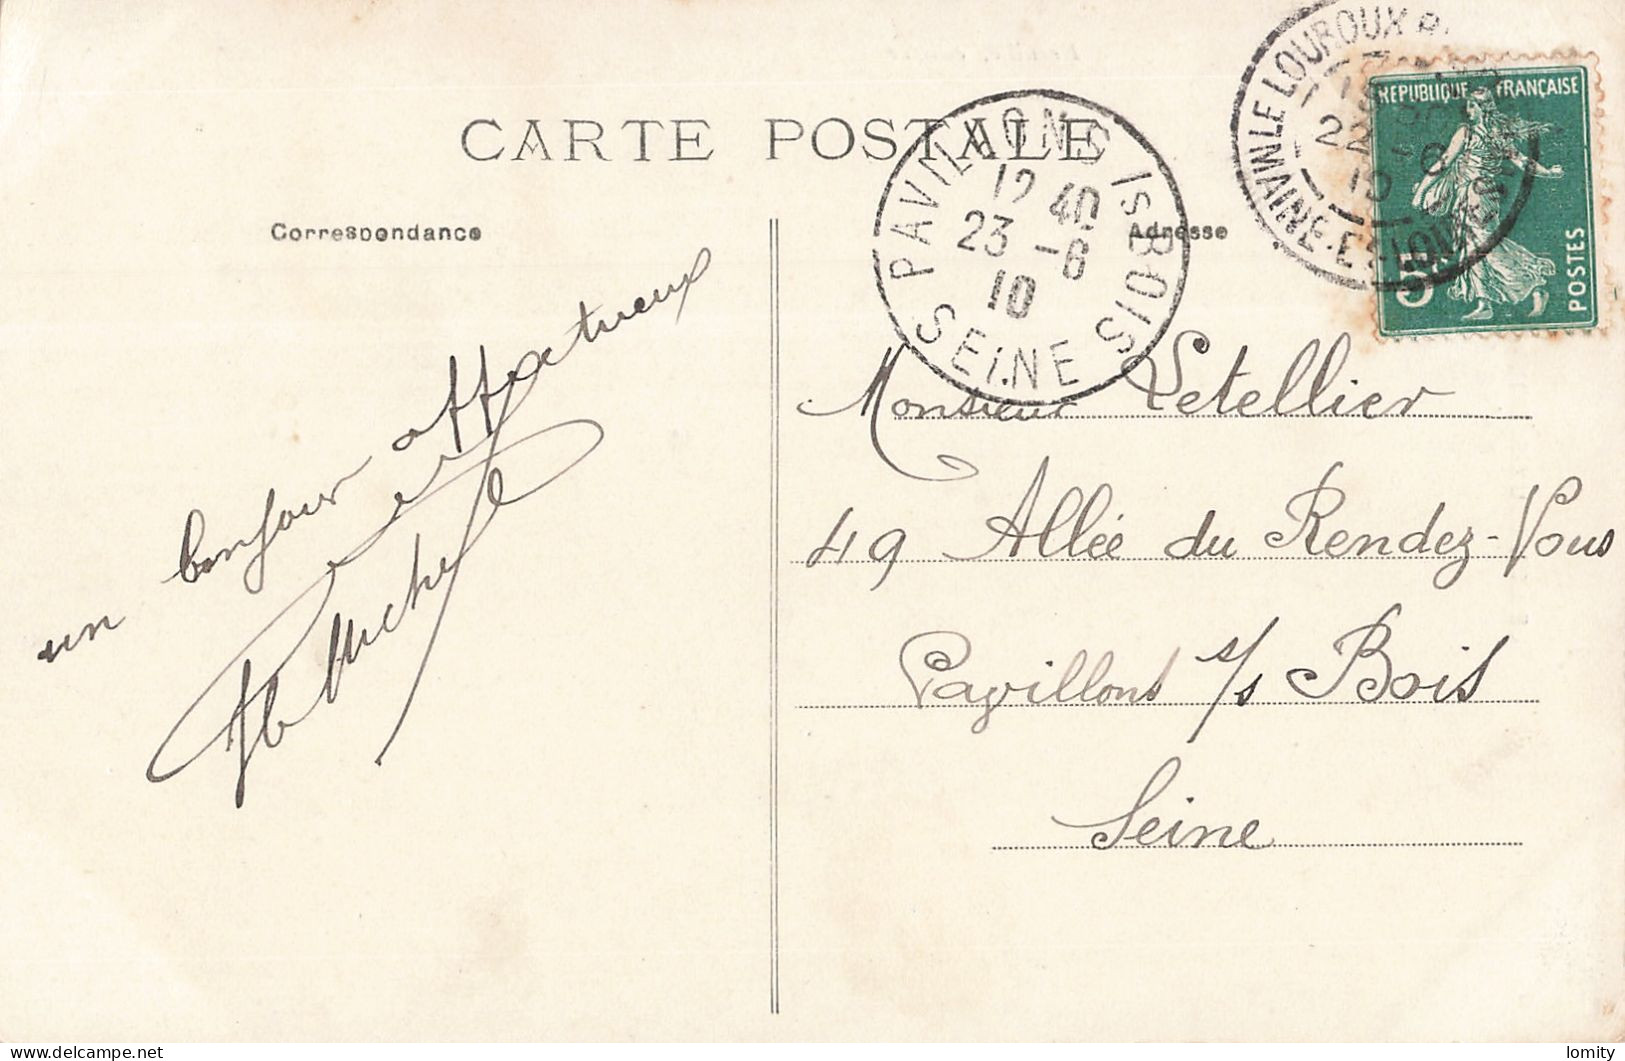 CARTE POSTALE
Correspondance
Adresse
PAVILLONS Is BOIS
12 40
23 -6
10
SEINE
LE LOUROUX B
22 -6
10
MAINE-ET-LOIRE
REPUBLIQUE FRANÇAISE
5c
POSTES
un bonjour affectueux
Michel
Monsieur Letellier
49 Allée du Rendez-Vous
Pavillons s/s Bois
Seine
delcampe.net
lomity